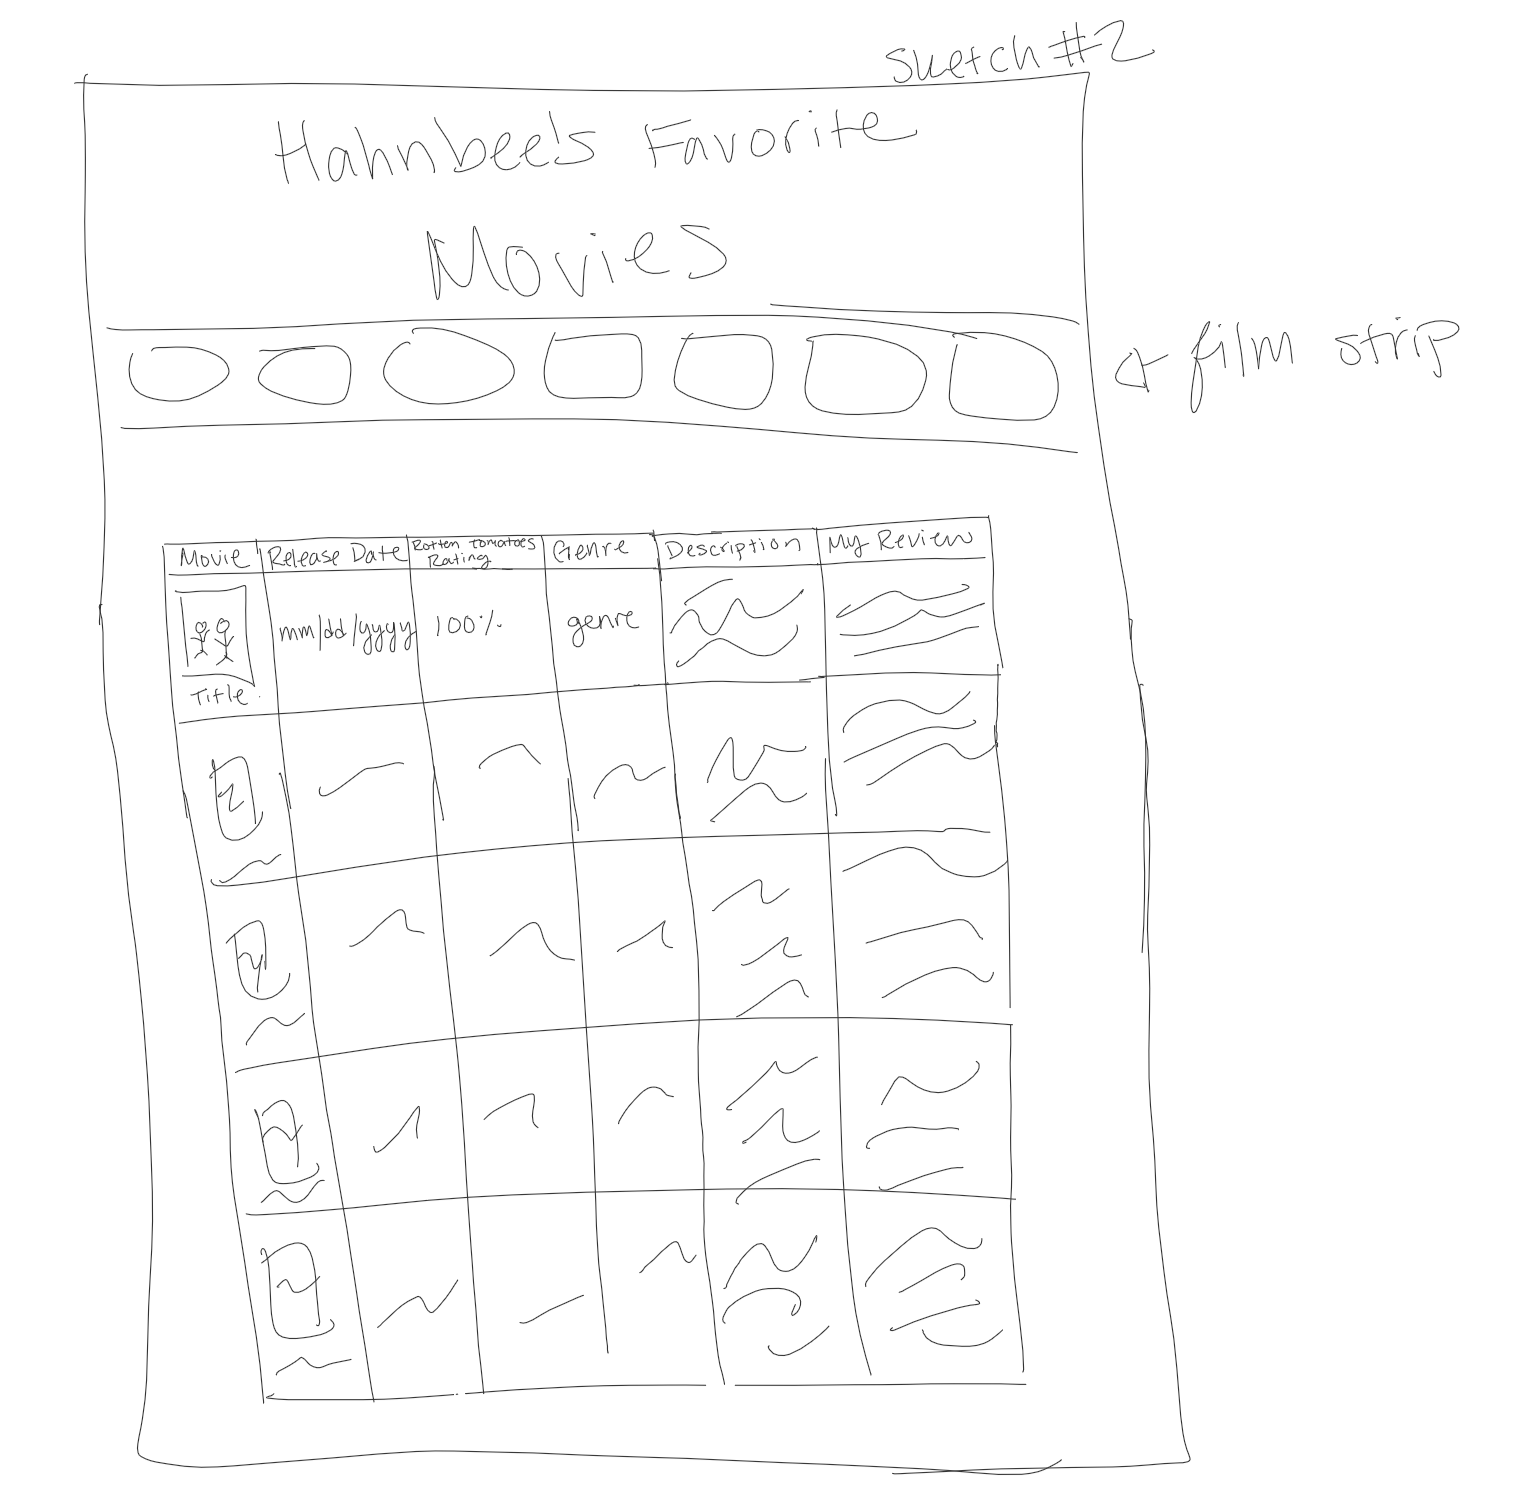 Sketch #2
Hahnbee's Favorite
Movies
film strip
Movie Release Date Rotten Tomatoes Rating Genre Description My Review
mm/dd/yyyy 100% genre
Title